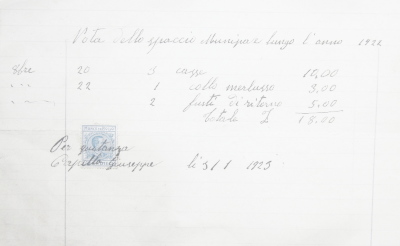 Nota dello spaccio Municipale lungo l'anno 1922
8/bre 20 5 casse 10,00
" " 22 1 collo merluzzo 3.00
" 2 fusti di ritorno 5.00
Totale L 18.00
Per quitanza
Giuseppe li 31/1 1923